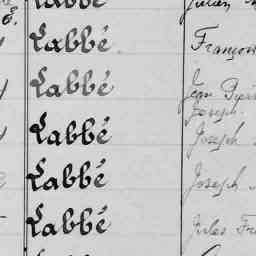 Labbé
Labbé François
Labbé Jean Pierre
Joseph
Labbé Joseph
Labbé Joseph
Labbé Jules